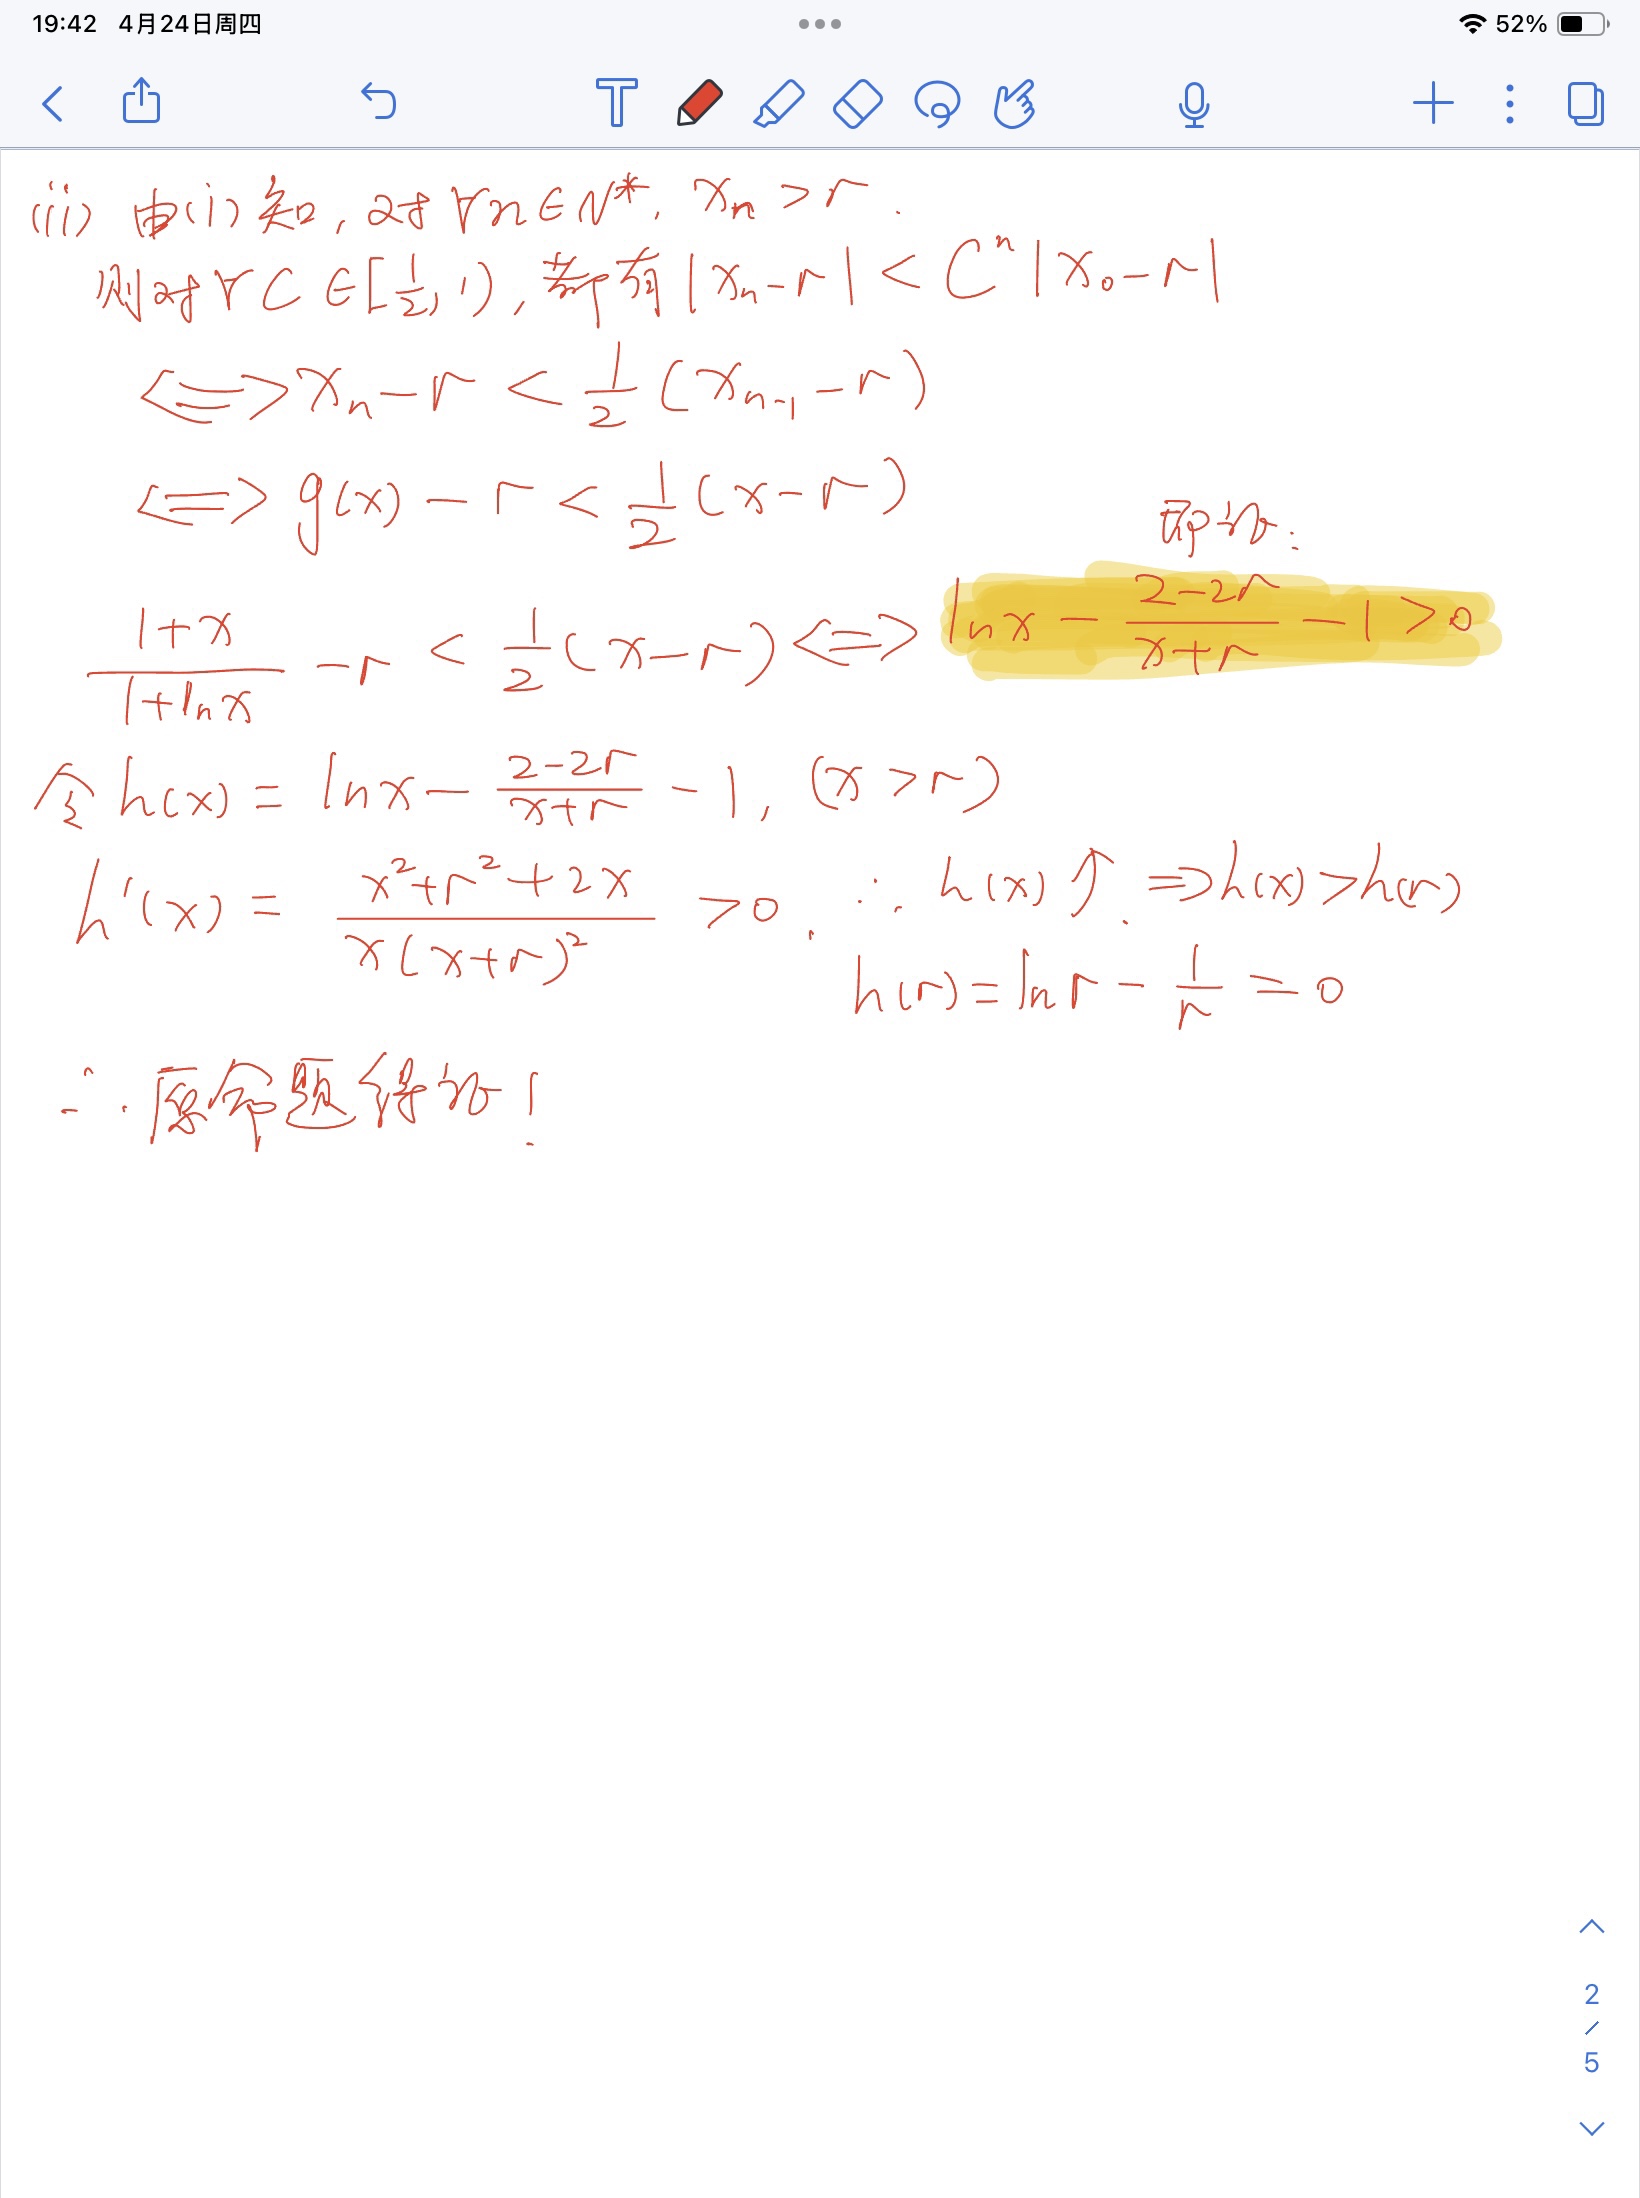 19:42 4月24日周四 52%
(ii) 由(i)知,对∀n∈N*, xₙ>r.
则对∀C∈[1/2, 1), 都有|xₙ-r|<Cⁿ|x₀-r|
⟺ xₙ-r < 1/2 (xₙ₋₁-r)
⟺ g(x)-r < 1/2 (x-r)
即证:
(1+x)/(1+lnx) -r < 1/2 (x-r) ⟺ lnx - (2-2r)/(x+r) -1>0
令h(x) = lnx - (2-2r)/(x+r) -1, (x>r)
h'(x) = (x²+r²+2x)/(x(x+r)²) >0. ∴ h(x)↑. ⇒h(x)>h(r)
h(r)=lnr - 1/r = 0
∴原命题得证!
2
/
5